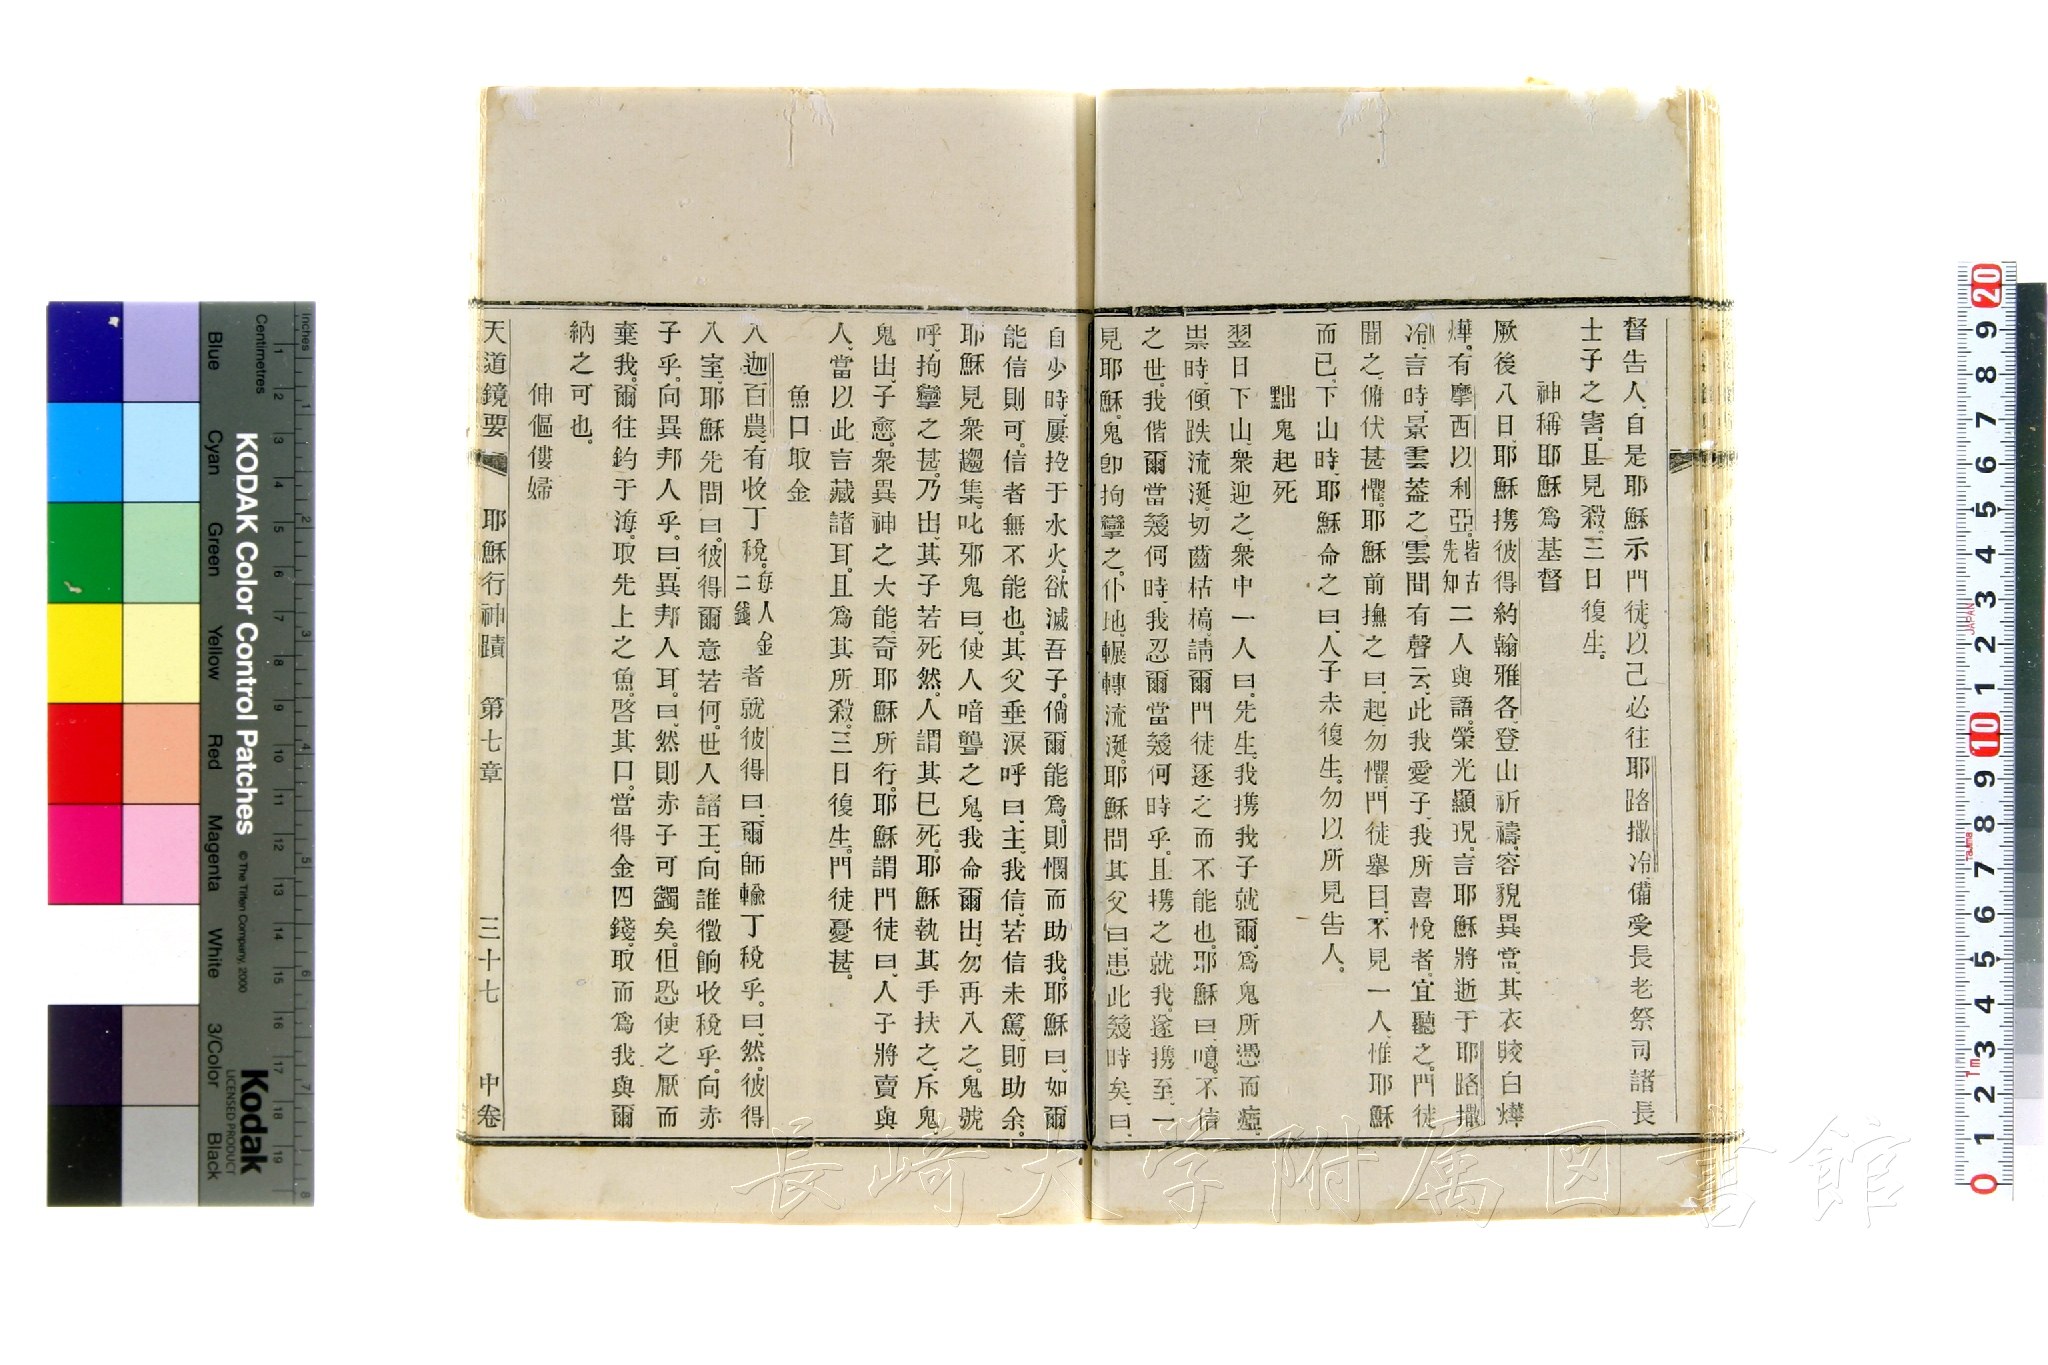 督告人、自是耶穌示門徒、以己必往耶路撒冷、備受長老祭司諸長
士子之害、且見殺、三日復生。
神稱耶穌爲基督
厥後八日、耶穌携彼得約翰雅各、登山祈禱、容貌異常、其衣皎白燁
燁。有摩西以利亞、皆古先知二人與語、榮光顯現、言耶穌將逝于耶路撒
冷、言時、景雲蓋之、雲間有聲云、此我愛子、我所喜悅者、宜聽之。門徒
聞之、俯伏甚懼。耶穌前撫之曰、起、勿懼、門徒舉目、不見一人、惟耶穌
而已、下山時、耶穌命之曰、人子未復生、勿以所見告人。
黜鬼起死
翌日下山、衆迎之、衆中一人曰、先生、我携我子就爾、爲鬼所憑而瘖、
祟時、傾跌流涎、切齒枯槁、請爾門徒逐之而不能也。耶穌曰、噫、不信
之世。我偕爾當幾何時、我忍爾當幾何時乎。且携之就我。遂携至、一
見耶穌、鬼卽拘攣之。仆地、輾轉流涎。耶穌問其父曰、患此幾時矣、曰、
自少時、屢投于水火。欲滅吾子。倘爾能爲、則憫而助我。耶穌曰、如爾
能信則可。信者無不能也。其父垂淚呼曰、主、我信、若信未篤、則助余。
耶穌見衆趨集。叱邪鬼曰、使人喑聾之鬼、我命爾出、勿再入之。鬼號
呼、拘攣之甚。乃出、其子若死然。人謂其已死、耶穌執其手扶之、斥鬼
鬼出、子愈。衆異神之大能、奇耶穌所行。耶穌謂門徒曰、人子將賣與
人、當以此言藏諸耳。且爲其所殺、三日復生。門徒憂甚。
魚口取金
入迦百農、有收丁稅。每人金二錢者就彼得曰、爾師輸丁稅乎。曰、然。彼得
入室、耶穌先問曰。彼得爾意若何。世人諸王、向誰徵餉收稅乎。向赤
子乎。向異邦人乎。曰、異邦人耳。曰、然則赤子可蠲矣。但恐使之厭而
棄我。爾往釣于海。取先上之魚。啓其口。當得金四錢。取而爲我與爾
納之可也。
伸傴僂婦
天道鏡要 耶穌行神蹟 第七章 三十七 中卷
KODAK Color Control Patches
© The Tiffen Company, 2000
Kodak
LICENSED PRODUCT
Inches
Centimetres
Blue Cyan Green Yellow Red Magenta White 3/Color Black
長崎大学附属図書館